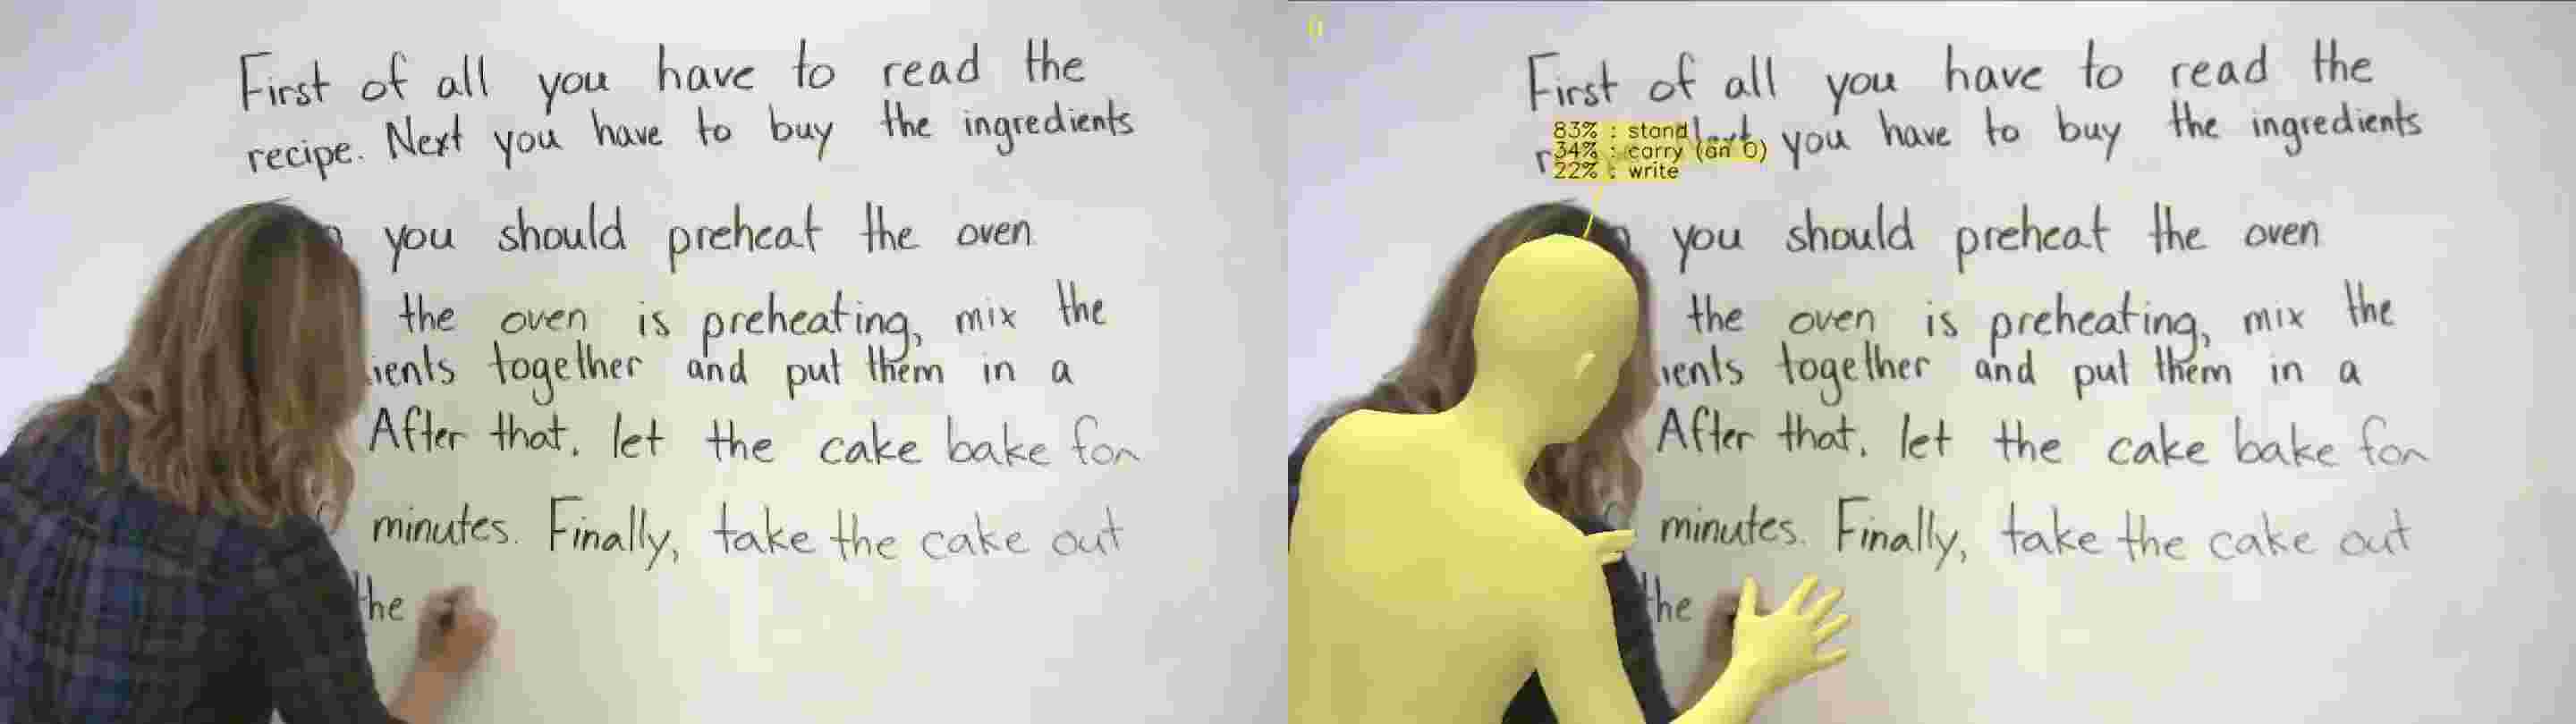 First of all you have to read the
recipe. Next you have to buy the ingredients
you should preheat the oven
the oven is preheating, mix the
ients together and put them in a
After that, let the cake bake for
minutes. Finally, take the cake out
the
First of all you have to read the
you have to buy the ingredients
83% : stand
34% : carry (an O)
22% : write
you should preheat the oven
the oven is preheating, mix the
ients together and put them in a
After that, let the cake bake for
minutes. Finally, take the cake out
the